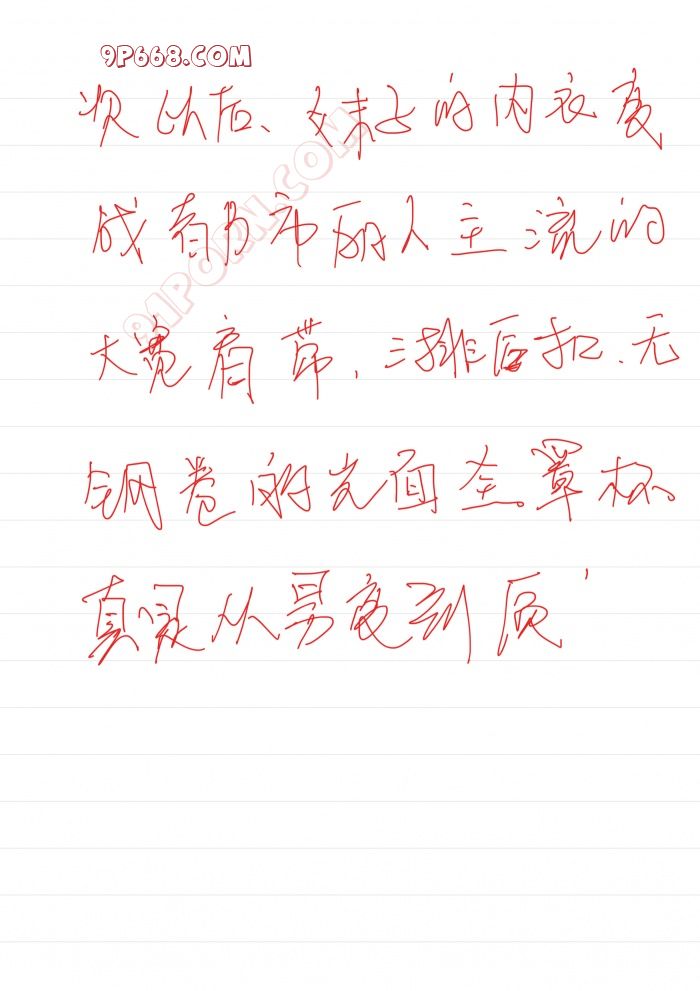 9P668.COM
次以后、妹子的内衣变
成有都市丽人主流的
大宽肩带,三排后扣、无
钢卷的光面全罩杯。
真是从量变到质
91PORN.COM